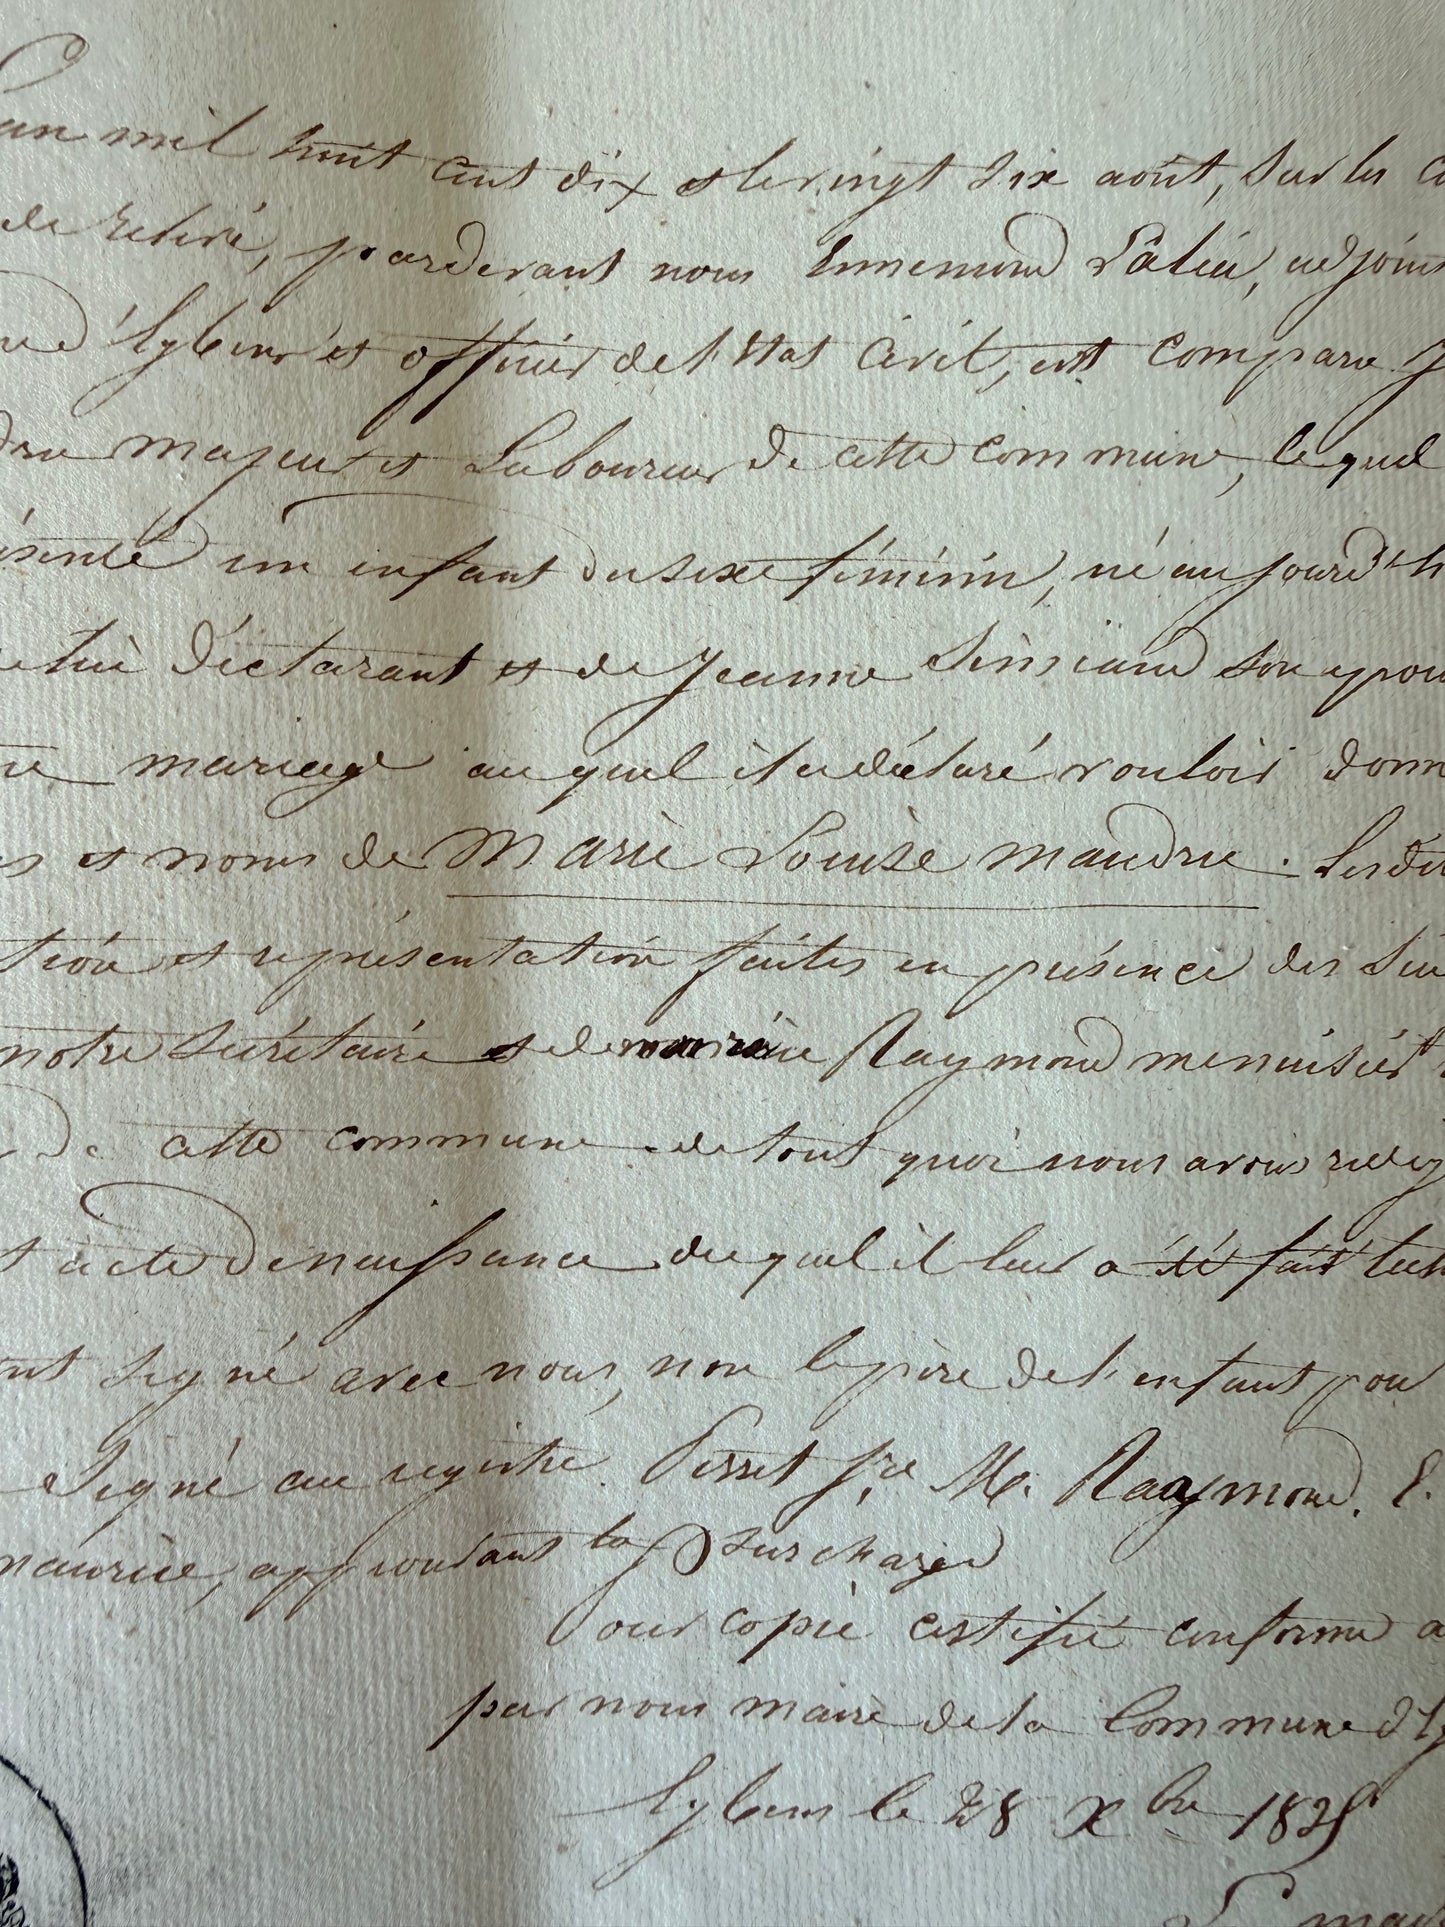 L'an mil huit cent dix et le vingt six août, sur les
de relevé, pardevant nous Ennemond adjoint
d'Eybens et officier de l'Etat civil, est comparu
majeur et Laboureur de cette commune, lequel
un enfant du sexe féminin, né aujourd'h
lui déclarant et de Jeanne Simiand son epou
mariage auquel il a déclaré vouloir donn
et noms de Marie Louise Maudru. Lesd
tion et représentation faites en présence des Sieu
notre secrétaire et de Raymond menuisier
de cette commune de tout quoi nous avons rédig
acte de naissance duquel il leur a été fait lect
signé avec nous, non le père de l'enfant pou
Signé au registre. Perret fre M. Raymond. E.
maurice, approuvant la surcharge
Pour copie certifié conforme a
par nous maire de la Commune d'Ey
Eybens le 28 Xbre 1825